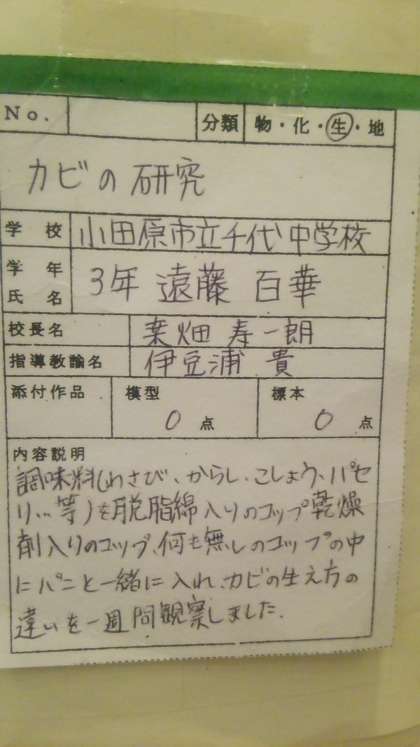 No. 分類 物・化・生・地
カビの研究
学校 小田原市立千代中学校
学年 氏名 3年 遠藤 百華
校長名 葉畑 寿一朗
指導教諭名 伊豆浦 貴
添付作品 模型 0点 標本 0点
内容説明
調味料(わさび、からし、こしょう、パセ
リ…等)を脱脂綿入りのコップ乾燥
剤入りのコップ、何も無しのコップの中
にパンと一緒に入れ、カビの生え方の
違いを一週間観察しました。